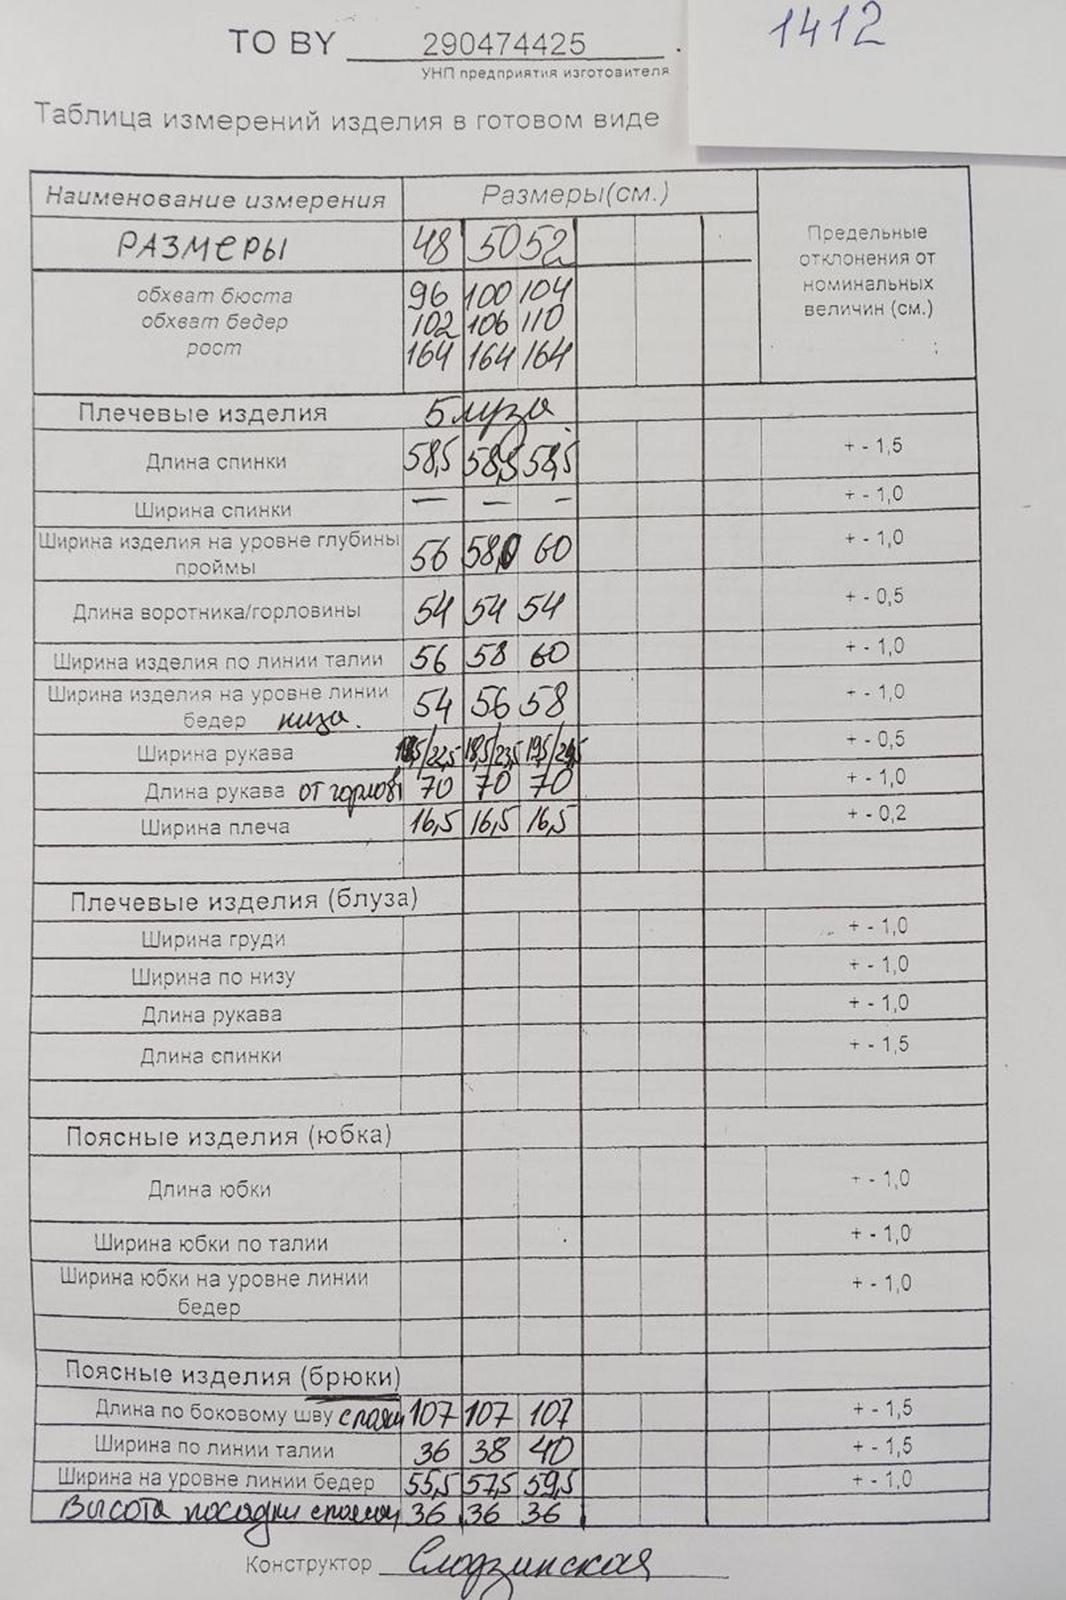 1412
ТО BY 290474425 .
УНП предприятия изготовителя
Таблица измерений изделия в готовом виде
Наименование измерения Размеры(см.) Предельные отклонения от номинальных величин (см.)
РАЗМЕРЫ 48 50 52
обхват бюста 96 100 104
обхват бедер 102 106 110
рост 164 164 164
Плечевые изделия Блуза
Длина спинки 58,5 58,5 58,5 + - 1,5
Ширина спинки — — – + - 1,0
Ширина изделия на уровне глубины 56 58,0 60 + - 1,0
проймы
Длина воротника/горловины 54 54 54 + - 0,5
Ширина изделия по линии талии 56 58 60 + - 1,0
Ширина изделия на уровне линии 54 56 58 + - 1,0
бедер низа.
Ширина рукава /22,5 18,5/23,5 19,5/24,5 + - 0,5
Длина рукава от горлов 70 70 70 + - 1,0
Ширина плеча 16,5 16,5 16,5 + - 0,2
Плечевые изделия (блуза)
Ширина груди + - 1,0
Ширина по низу + - 1,0
Длина рукава + - 1,0
Длина спинки + - 1,5
Поясные изделия (юбка)
Длина юбки + - 1,0
Ширина юбки по талии + - 1,0
Ширина юбки на уровне линии + - 1,0
бедер
Поясные изделия (брюки)
Длина по боковому шву 107 107 107 + - 1,5
Ширина по линии талии 36 38 40 + - 1,5
Ширина на уровне линии бедер 55,5 57,5 59,5 + - 1,0
Высота посадки 36 36 36
Конструктор Слодзинская